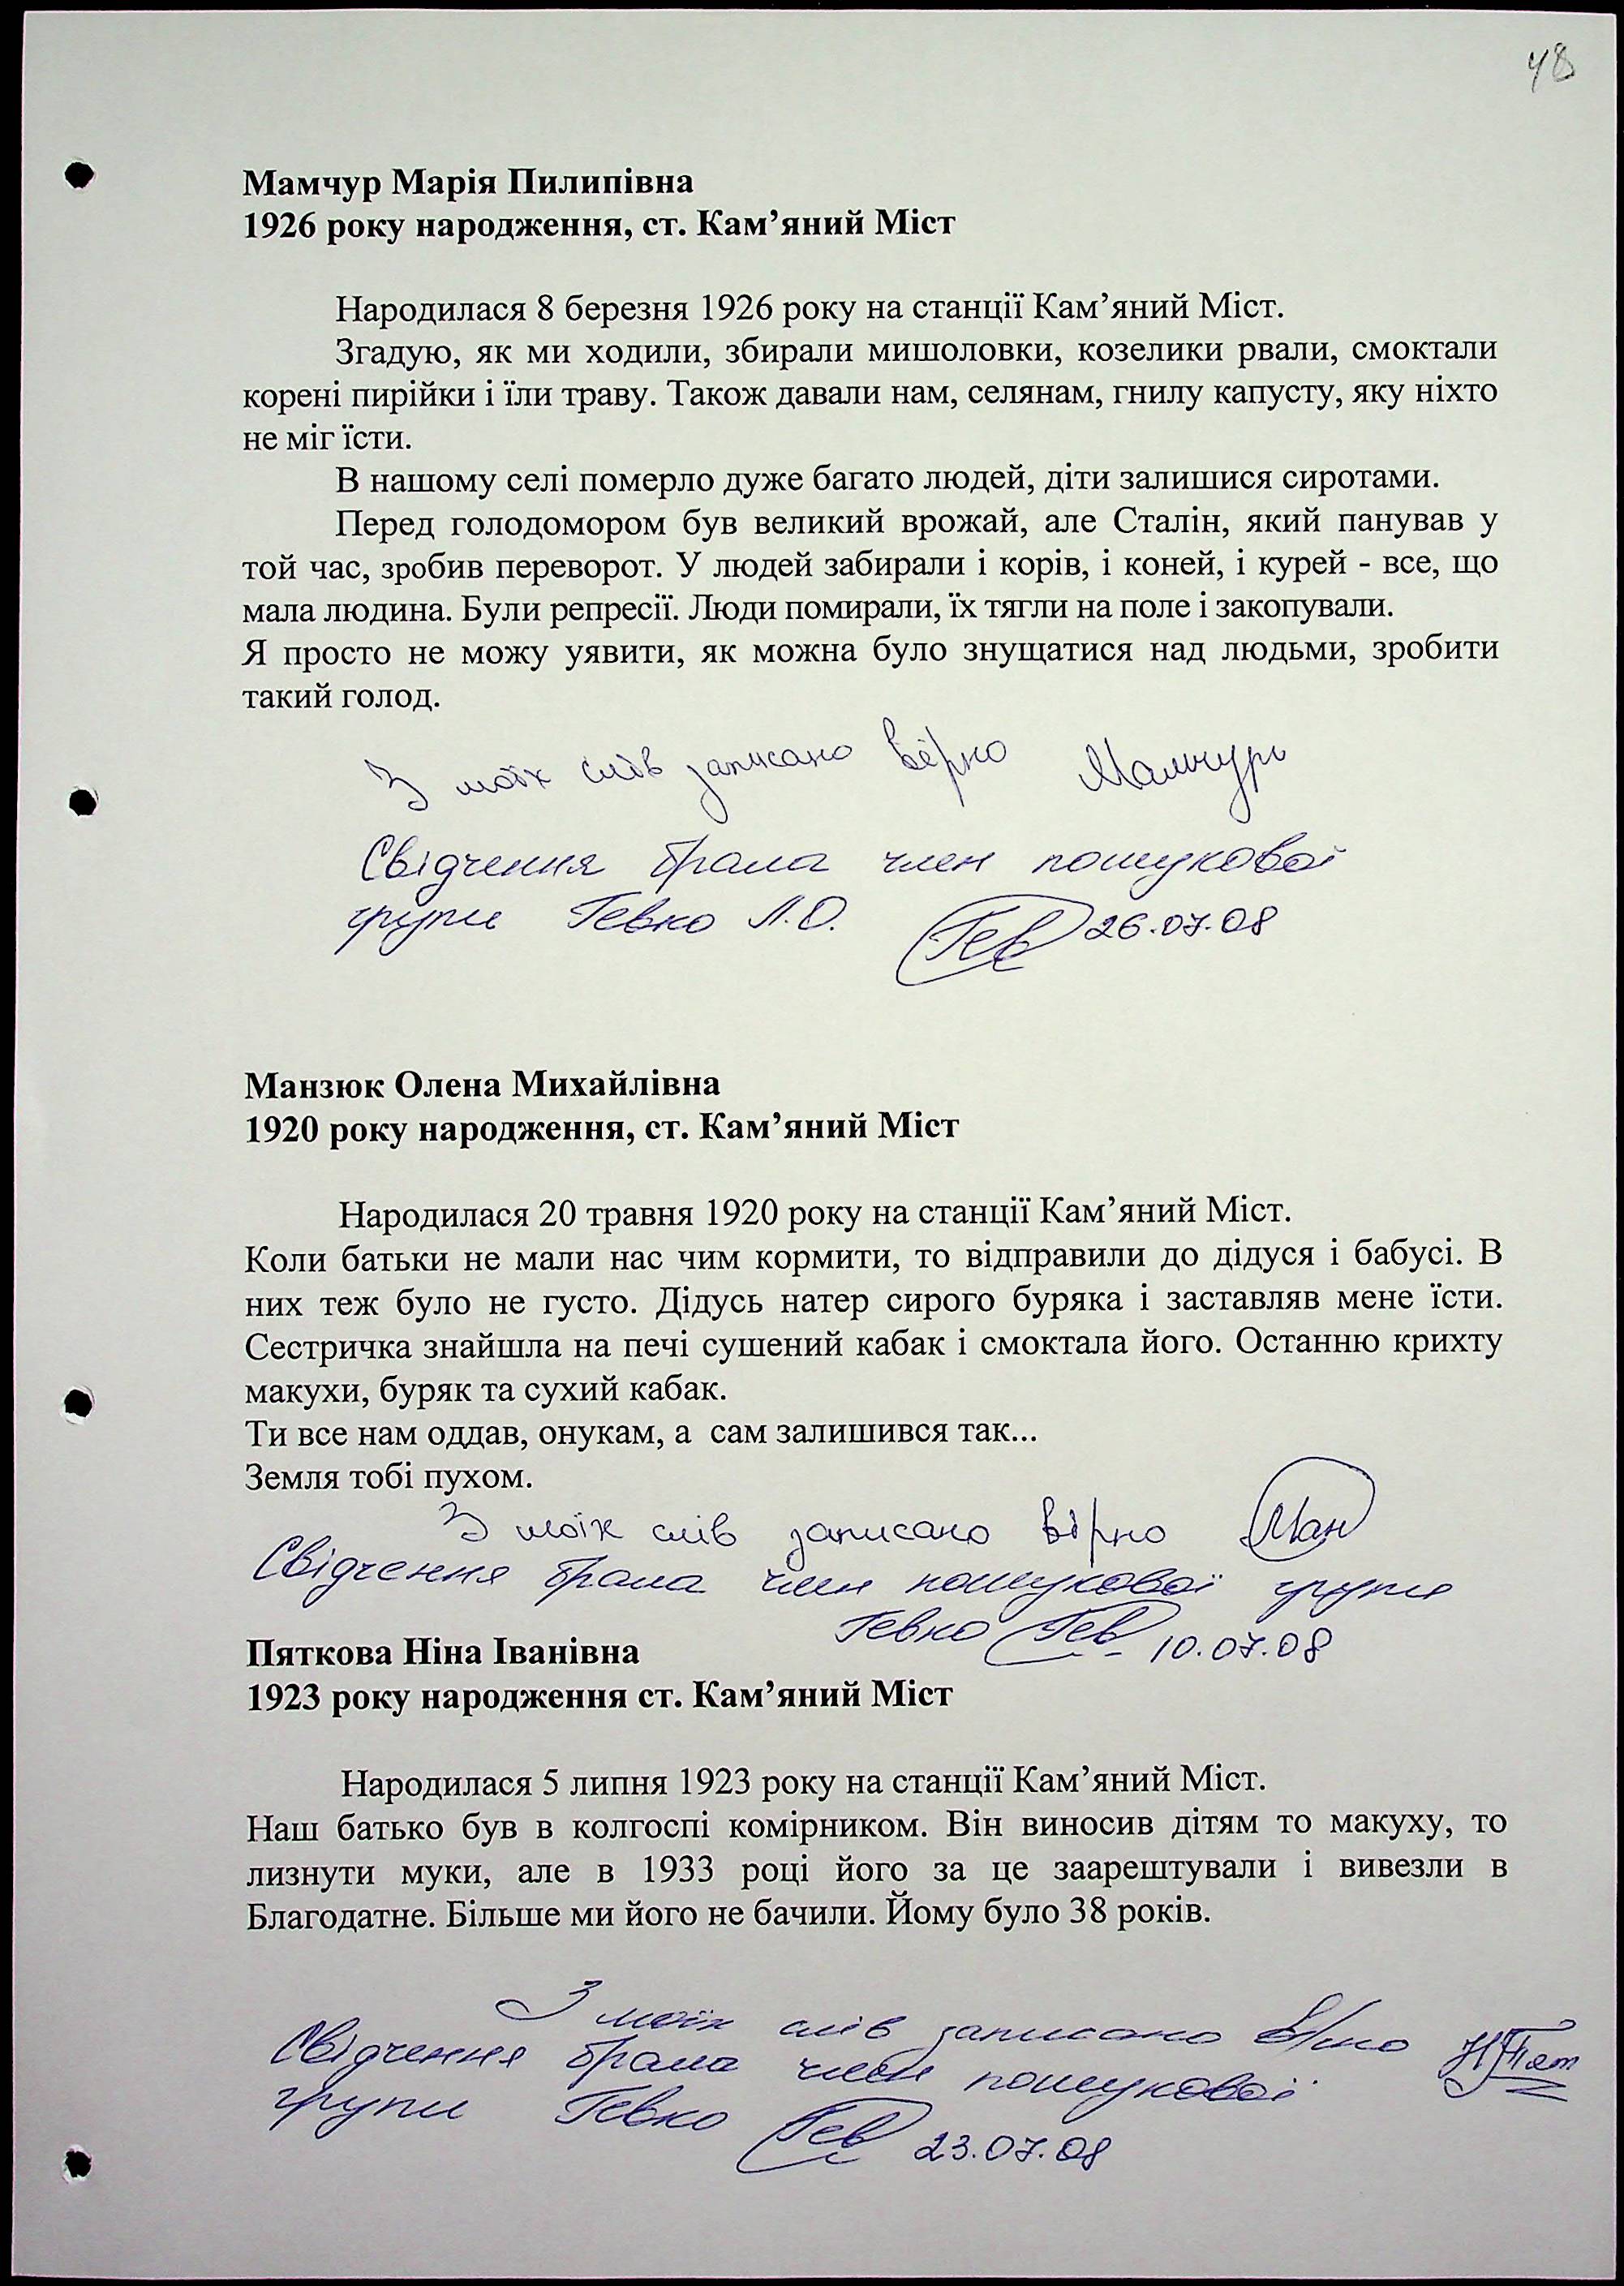 48
Мамчур Марія Пилипівна
1926 року народження, ст. Кам’яний Міст
Народилася 8 березня 1926 року на станції Кам’яний Міст.
Згадую, як ми ходили, збирали мишоловки, козелики рвали, смоктали
корені пирійки і їли траву. Також давали нам, селянам, гнилу капусту, яку ніхто
не міг їсти.
В нашому селі померло дуже багато людей, діти залишися сиротами.
Перед голодомором був великий врожай, але Сталін, який панував у
той час, зробив переворот. У людей забирали і корів, і коней, і курей - все, що
мала людина. Були репресії. Люди помирали, їх тягли на поле і закопували.
Я просто не можу уявити, як можна було знущатися над людьми, зробити
такий голод.
З моїх слів записано вірно Мамчур
Свідчення брала член пошукової
групи Гевко Л.О. Гев 26.07.08
Манзюк Олена Михайлівна
1920 року народження, ст. Кам’яний Міст
Народилася 20 травня 1920 року на станції Кам’яний Міст.
Коли батьки не мали нас чим кормити, то відправили до дідуся і бабусі. В
них теж було не густо. Дідусь натер сирого буряка і заставляв мене їсти.
Сестричка знайшла на печі сушений кабак і смоктала його. Останню крихту
макухи, буряк та сухий кабак.
Ти все нам оддав, онукам, а сам залишився так...
Земля тобі пухом.
З моїх слів записано вірно Ман
Свідчення брала член пошукової групи
Гевко Гев 10.07.08
Пяткова Ніна Іванівна
1923 року народження ст. Кам’яний Міст
Народилася 5 липня 1923 року на станції Кам’яний Міст.
Наш батько був в колгоспі комірником. Він виносив дітям то макуху, то
лизнути муки, але в 1933 році його за це заарештували і вивезли в
Благодатне. Більше ми його не бачили. Йому було 38 років.
З моїх слів записано вірно НПят
Свідчення брала член пошукової
групи Гевко Гев 23.07.08